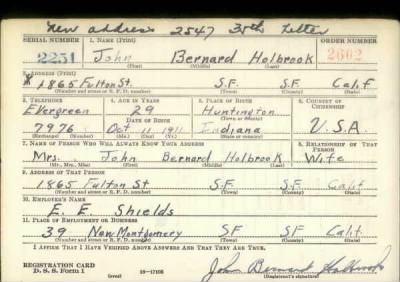 New address 2547 35th
SERIAL NUMBER 1. NAME (Print) ORDER NUMBER
2251 John Bernard Holbrook 2602
(First) (Middle) (Last)
2. ADDRESS (Print)
1865 Fulton St. S.F. S.F. Calif
(Number and street or R. F. D. number) (Town) (County) (State)
3. TELEPHONE 4. AGE IN YEARS 5. PLACE OF BIRTH 6. COUNTRY OF CITIZENSHIP
Evergreen 29 Huntington
DATE OF BIRTH (Town or county)
7976 Oct 11 1911 Indiana U.S.A.
(Exchange) (Number) (Mo.) (Day) (Yr.) (State or country)
7. NAME OF PERSON WHO WILL ALWAYS KNOW YOUR ADDRESS 8. RELATIONSHIP OF THAT PERSON
Mrs. John Bernard Holbrook Wife
(Mr., Mrs., Miss) (First) (Middle) (Last)
9. ADDRESS OF THAT PERSON
1865 Fulton St S.F. S.F. Calif.
(Number and street or R. F. D. number) (Town) (County) (State)
10. EMPLOYER'S NAME
E. E. Shields
11. PLACE OF EMPLOYMENT OR BUSINESS
39 New Montgomery S.F. S.F. Calif.
(Number and street or R. F. D. number) (Town) (County) (State)
I AFFIRM THAT I HAVE VERIFIED ABOVE ANSWERS AND THAT THEY ARE TRUE.
REGISTRATION CARD
D. S. S. Form 1 (over) 16—17105 John Bernard Holbrook
(Registrant's signature)